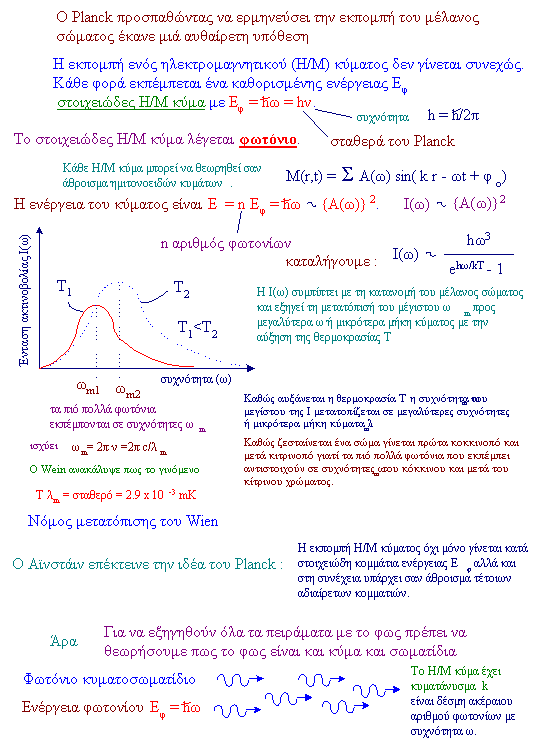 Ο Planck προσπαθώντας να ερμηνεύσει την εκπομπή του μέλανος
σώματος έκανε μιά αυθαίρετη υπόθεση
Η εκπομπή ενός ηλεκτρομαγνητικού (Η/Μ) κύματος δεν γίνεται συνεχώς.
Κάθε φορά εκπέμπεται ένα καθορισμένης ενέργειας Εφ
στοιχειώδες Η/Μ κύμα με Εφ = ħω = hν.
συχνότητα h = ħ/2π
Το στοιχειώδες Η/Μ κύμα λέγεται φωτόνιο.
σταθερά του Planck
Κάθε Η/Μ κύμα μπορεί να θεωρηθεί σαν
άθροισμα ημιτονοειδών κυμάτων .
M(r,t) = Σ A(ω) sin( k r - ωt + φ ο)
Η ενέργεια του κύματος είναι Ε = n Εφ = ħω ~ {A(ω)} 2. I(ω) ~ {A(ω)}2
n αριθμός φωτονίων
καταλήγουμε : I(ω) ~ hω3
ehω/kT - 1
Ένταση ακτινοβολίας,I(ω)
T1
T2
T1<T2
ωm1
ωm2
συχνότητα (ω)
Η I(ω) συμπίπτει με τη κατανομή του μέλανος σώματος
και εξηγεί τη μετατόπισή του μέγιστου ω m προς
μεγαλύτερα ω ή μικρότερα μήκη κύματος με την
αύξηση της θερμοκρασίας Τ
τα πιό πολλά φωτόνια
εκπέμπονται σε συχνότητες ω m
ισχύει ωm= 2π ν =2π c/λm
Ο Wein ανακάλυψε πως το γινόμενο
T λm = σταθερό = 2.9 x 10 -3 mK
Νόμος μετατόπισης του Wien
Καθώς αυξάνεται η θερμοκρασία Τ η συχνότητα ωm του
μεγίστου της Ι μετατοπίζεται σε μεγαλύτερες συχνότητες
ή μικρότερα μήκη κύματος λm
Καθώς ζεσταίνεται ένα σώμα γίνεται πρώτα κοκκινοπό και
μετά κιτρινοπό γιατί τα πιό πολλά φωτόνια που εκπέμπει
αντιστοιχούν σε συχνότητες ωm του κόκκινου και μετά του
κίτρινου χρώματος.
Ο Αϊνστάιν επέκτεινε την ιδέα του Planck :
Η εκπομπή Η/Μ κύματος όχι μόνο γίνεται κατά
στοιχειώδη κομμάτια ενέργειας Ε φ αλλά και
στη συνέχεια υπάρχει σαν άθροισμα τέτοιων
αδιαίρετων κομματιών.
Άρα
Για να εξηγηθούν όλα τα πειράματα με το φως πρέπει να
θεωρήσουμε πως το φως είναι και κύμα και σωματίδια
Φωτόνιο κυματοσωματίδιο
Ενέργεια φωτονίου Εφ = ħω
Το Η/Μ κύμα έχει
κυματάνυσμα k
είναι δέσμη ακέραιου
αριθμού φωτονίων με
συχνότητα ω.